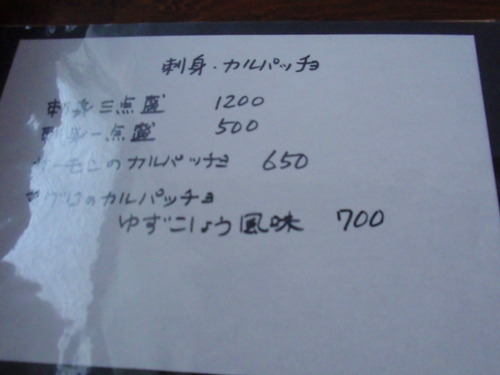 刺身・カルパッチョ
刺身三点盛 1200
刺身一点盛 500
サーモンのカルパッチョ 650
マグロのカルパッチョ
ゆずこしょう風味 700